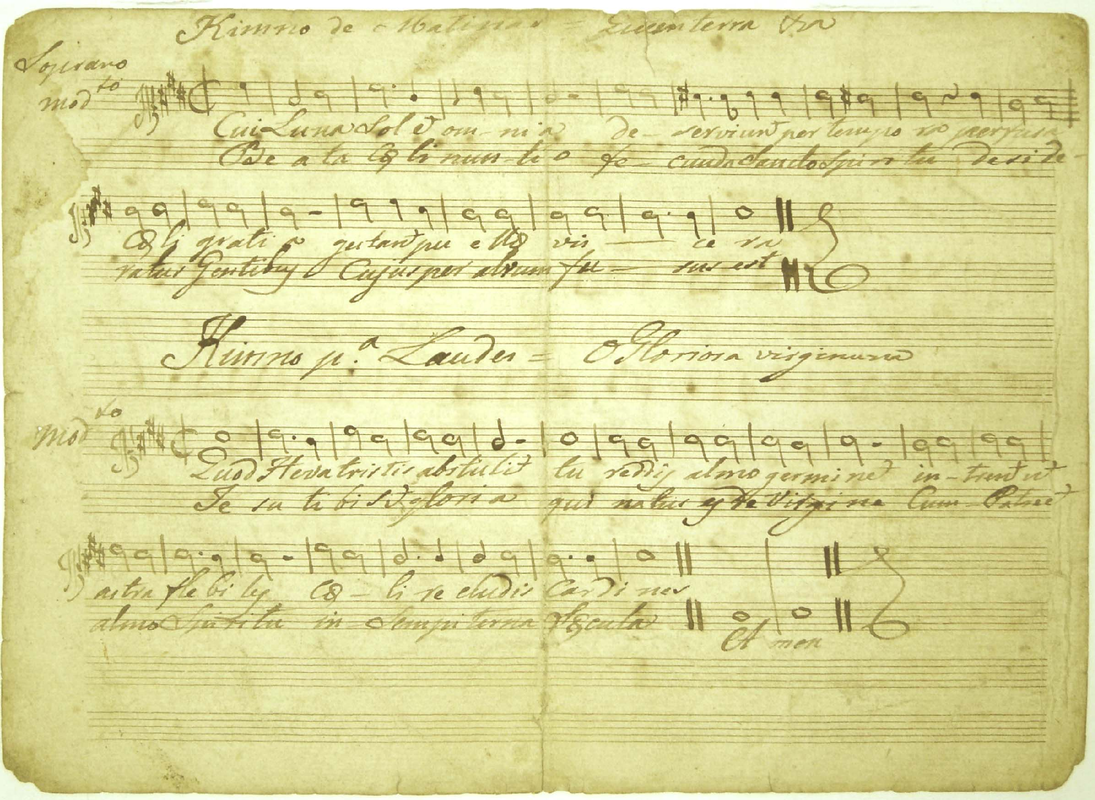 Himno de Matinas = Quem terra &a
Soprano
Modto
Cui Luna Sol et om ni a de- serviunt per tempo ra perfusa
Be a ta Cœli nun-ti o fe- cunda Sancto Spiri tu deside-
Cœli grati a gestant pu ellæ vis — ce ra
ratus Gentibus Cujus per alvum fu- sus est
Himno p.a Laudes = O Gloriosa virginum
Modto
Quod Heva tristis abstulit tu reddis almo germine in-trent ut
Je su ti bi sit gloria qui natus es de Virgine Cum Patre et
astra fle bi les Cœ-li re cludis Cardi nes
almo Spiritu in Sempi terna Sæcula
A men